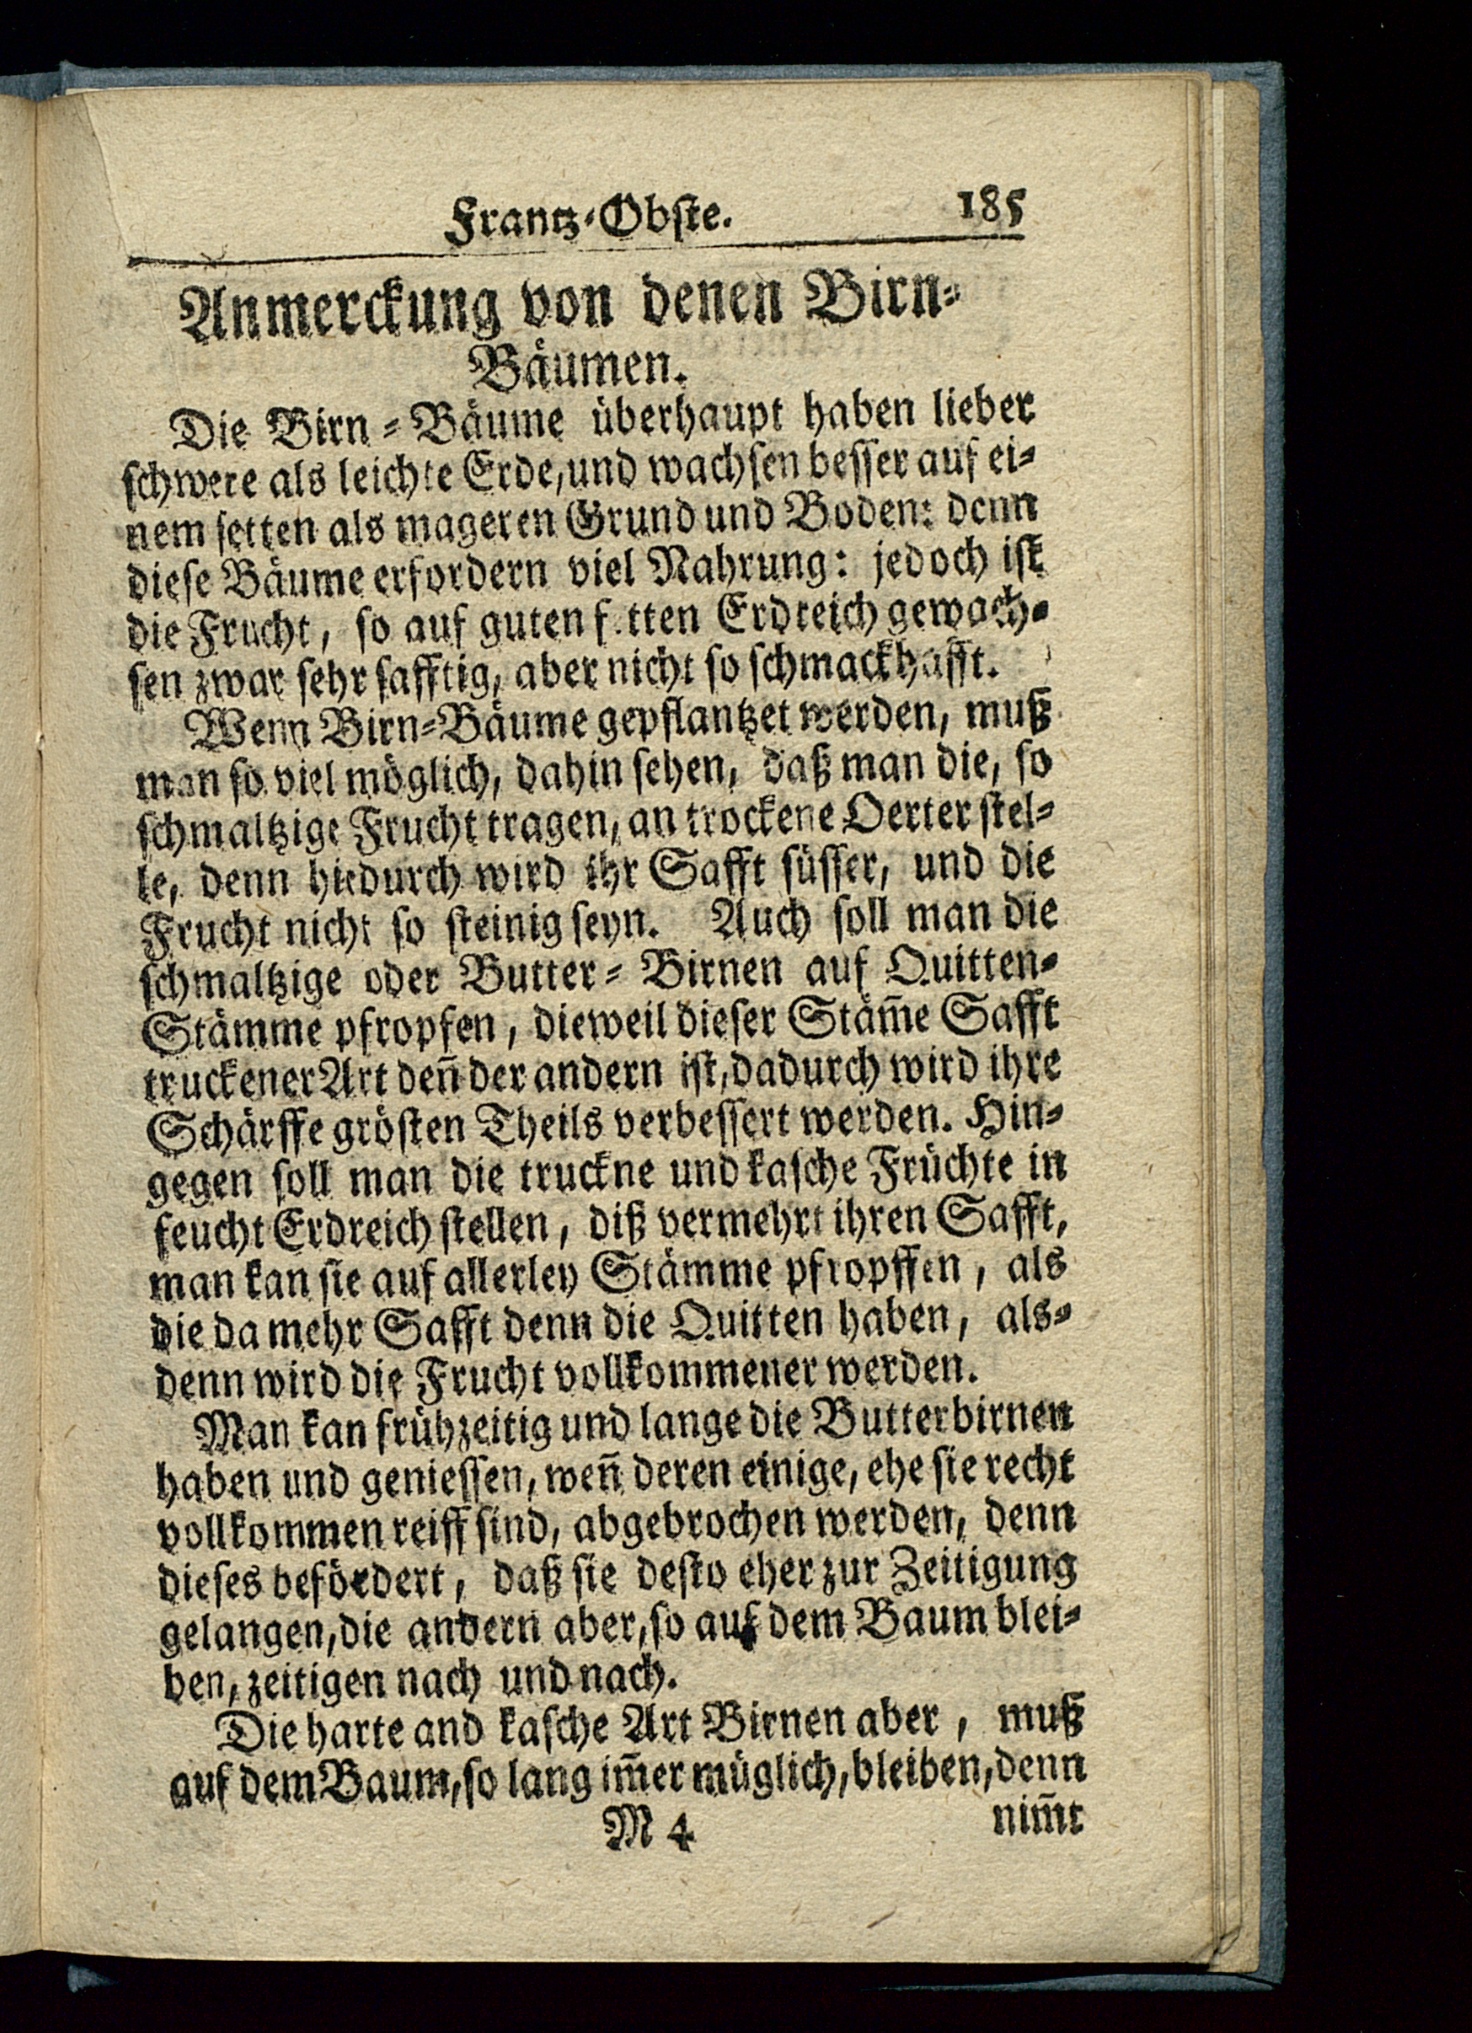 Frantz-Obste. 185
Anmerckung von denen Birn-
Bäumen.
Die Birn-Bäume überhaupt haben lieber
schwere als leichte Erde, und wachsen besser auf ei-
nem fetten als mageren Grund und Boden: denn
diese Bäume erfordern viel Nahrung: jedoch ist
die Frucht, so auf guten f tten Erdreich gewach-
sen zwar sehr safftig, aber nicht so schmackhafft.
Wenn Birn-Bäume gepflantzet werden, muß
man so viel möglich, dahin sehen, daß man die, so
schmaltzige Frucht tragen, an trockene Oerter stel-
le, denn hiedurch wird ihr Safft süsser, und die
Frucht nicht so steinig seyn. Auch soll man die
schmaltzige oder Butter-Birnen auf Quitten-
Stämme pfropfen, dieweil dieser Stäm̃e Safft
truckener Art deñ der andern ist, dadurch wird ihre
Schärffe grösten Theils verbessert werden. Hin-
gegen soll man die truckne und kasche Früchte in
feucht Erdreich stellen, diß vermehrt ihren Safft,
man kan sie auf allerley Stämme pfropffen, als
die da mehr Safft denn die Quitten haben, als-
denn wird die Frucht vollkommener werden.
Man kan frühzeitig und lange die Butterbirnen
haben und geniessen, weñ deren einige, ehe sie recht
vollkommen reiff sind, abgebrochen werden, denn
dieses befördert, daß sie desto eher zur Zeitigung
gelangen, die andern aber, so auf dem Baum blei-
ben, zeitigen nach und nach.
Die harte and kasche Art Birnen aber, muß
auf dem Baum, so lang im̃er müglich, bleiben, denn
M 4 nim̃t